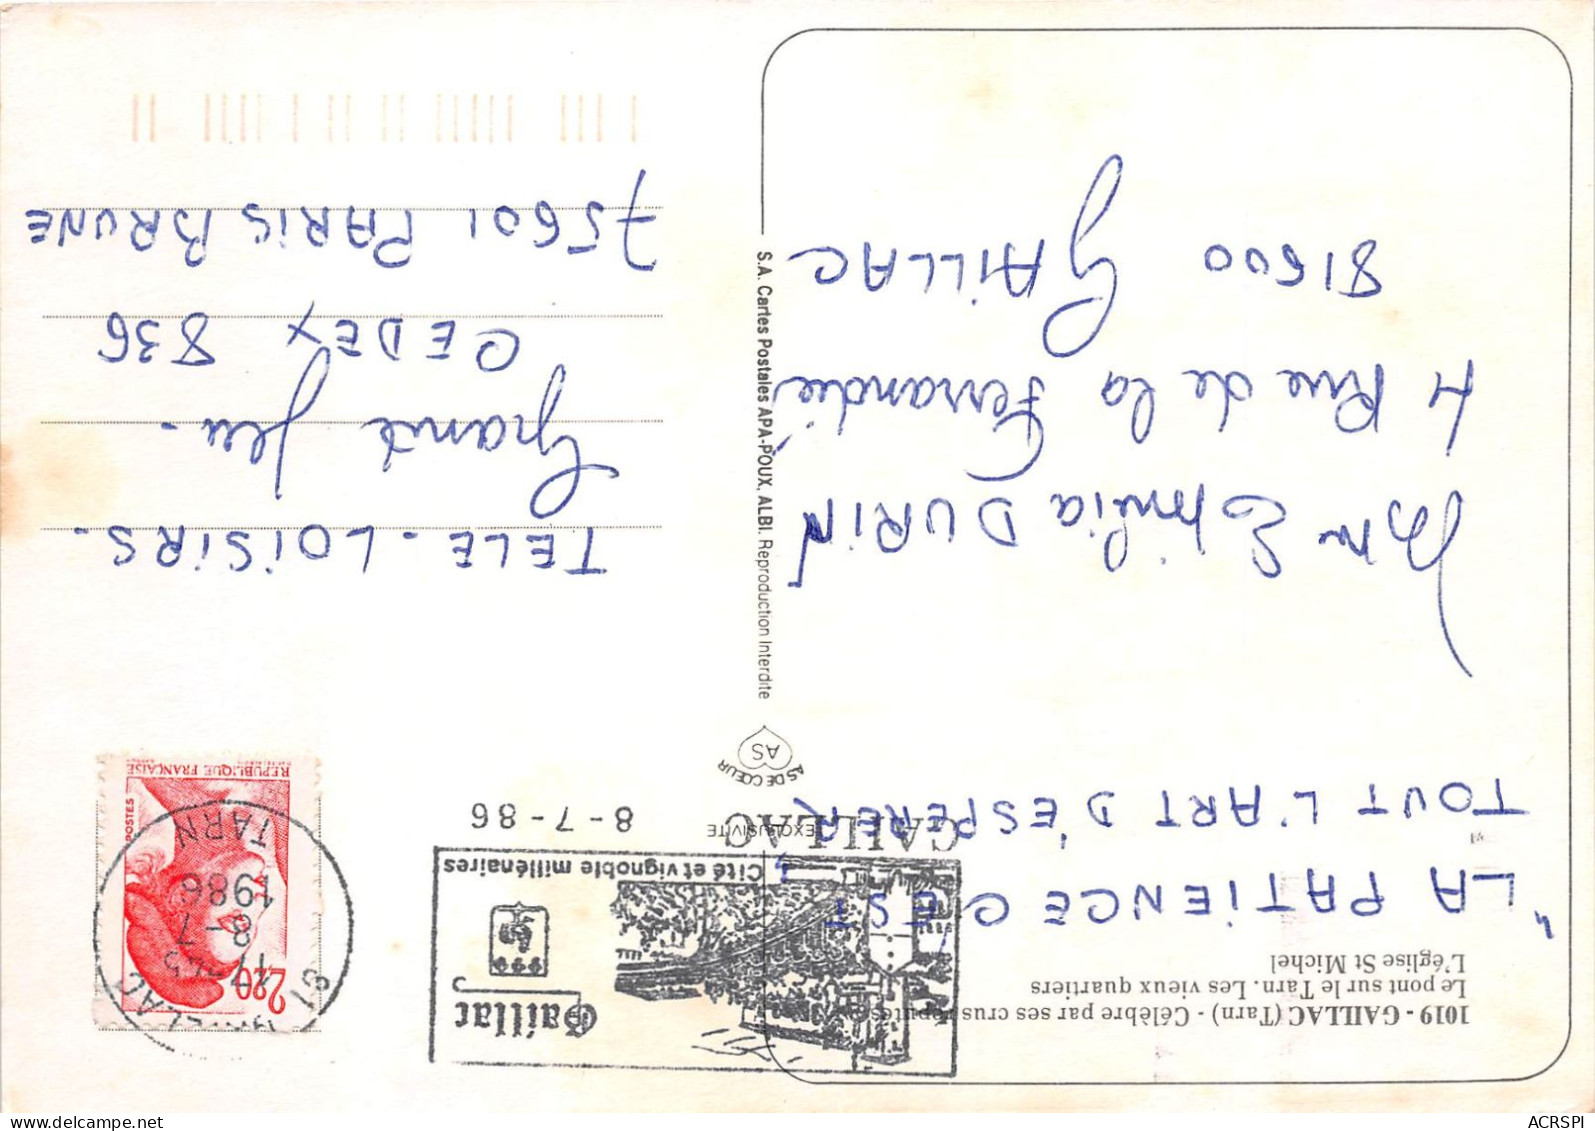 1019 - GAILLAC (Tarn) - Célèbre par ses crus réputés
Le pont sur le Tarn. Les vieux quartiers
L'église St Michel
"LA PATIENCE C'EST
TOUT L'ART D'ESPÉRER"
Mme Emilia DURIN
4 Rue de la Ferrandié
81600 GAILLAC
EXCLUSIVITE
AS DE CŒUR
AS
S.A. Cartes Postales APA-POUX, ALBI. Reproduction Interdite
Gaillac
Cité et vignoble millénaires
GAILLAC
8 - 7 - 86
81 GAILLAC
17H45
8 - 7
1986
TARN
2,20
POSTES
REPUBLIQUE FRANÇAISE
TELE-LOISIRS-
Grand Jeu -
CEDEX 836
75601 PARIS BRUNE
ACRSPI